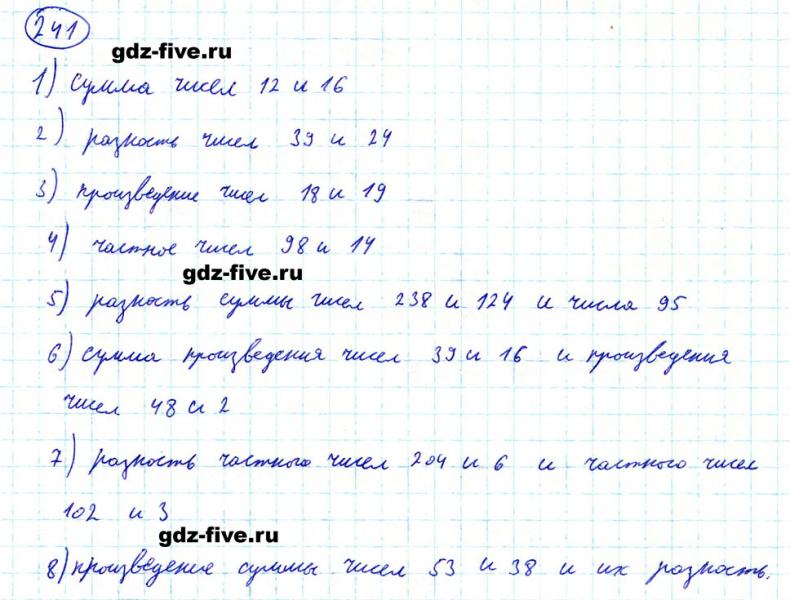 241
gdz-five.ru
1) Сумма чисел 12 и 16
2) разность чисел 39 и 24
3) произведение чисел 18 и 19
4) частное чисел 98 и 14
gdz-five.ru
5) разность суммы чисел 238 и 124 и числа 95
6) сумма произведения чисел 39 и 16 и произведения
чисел 48 и 2
7) разность частного чисел 204 и 6 и частного чисел
102 и 3
gdz-five.ru
8) произведение суммы чисел 53 и 38 и их разность.